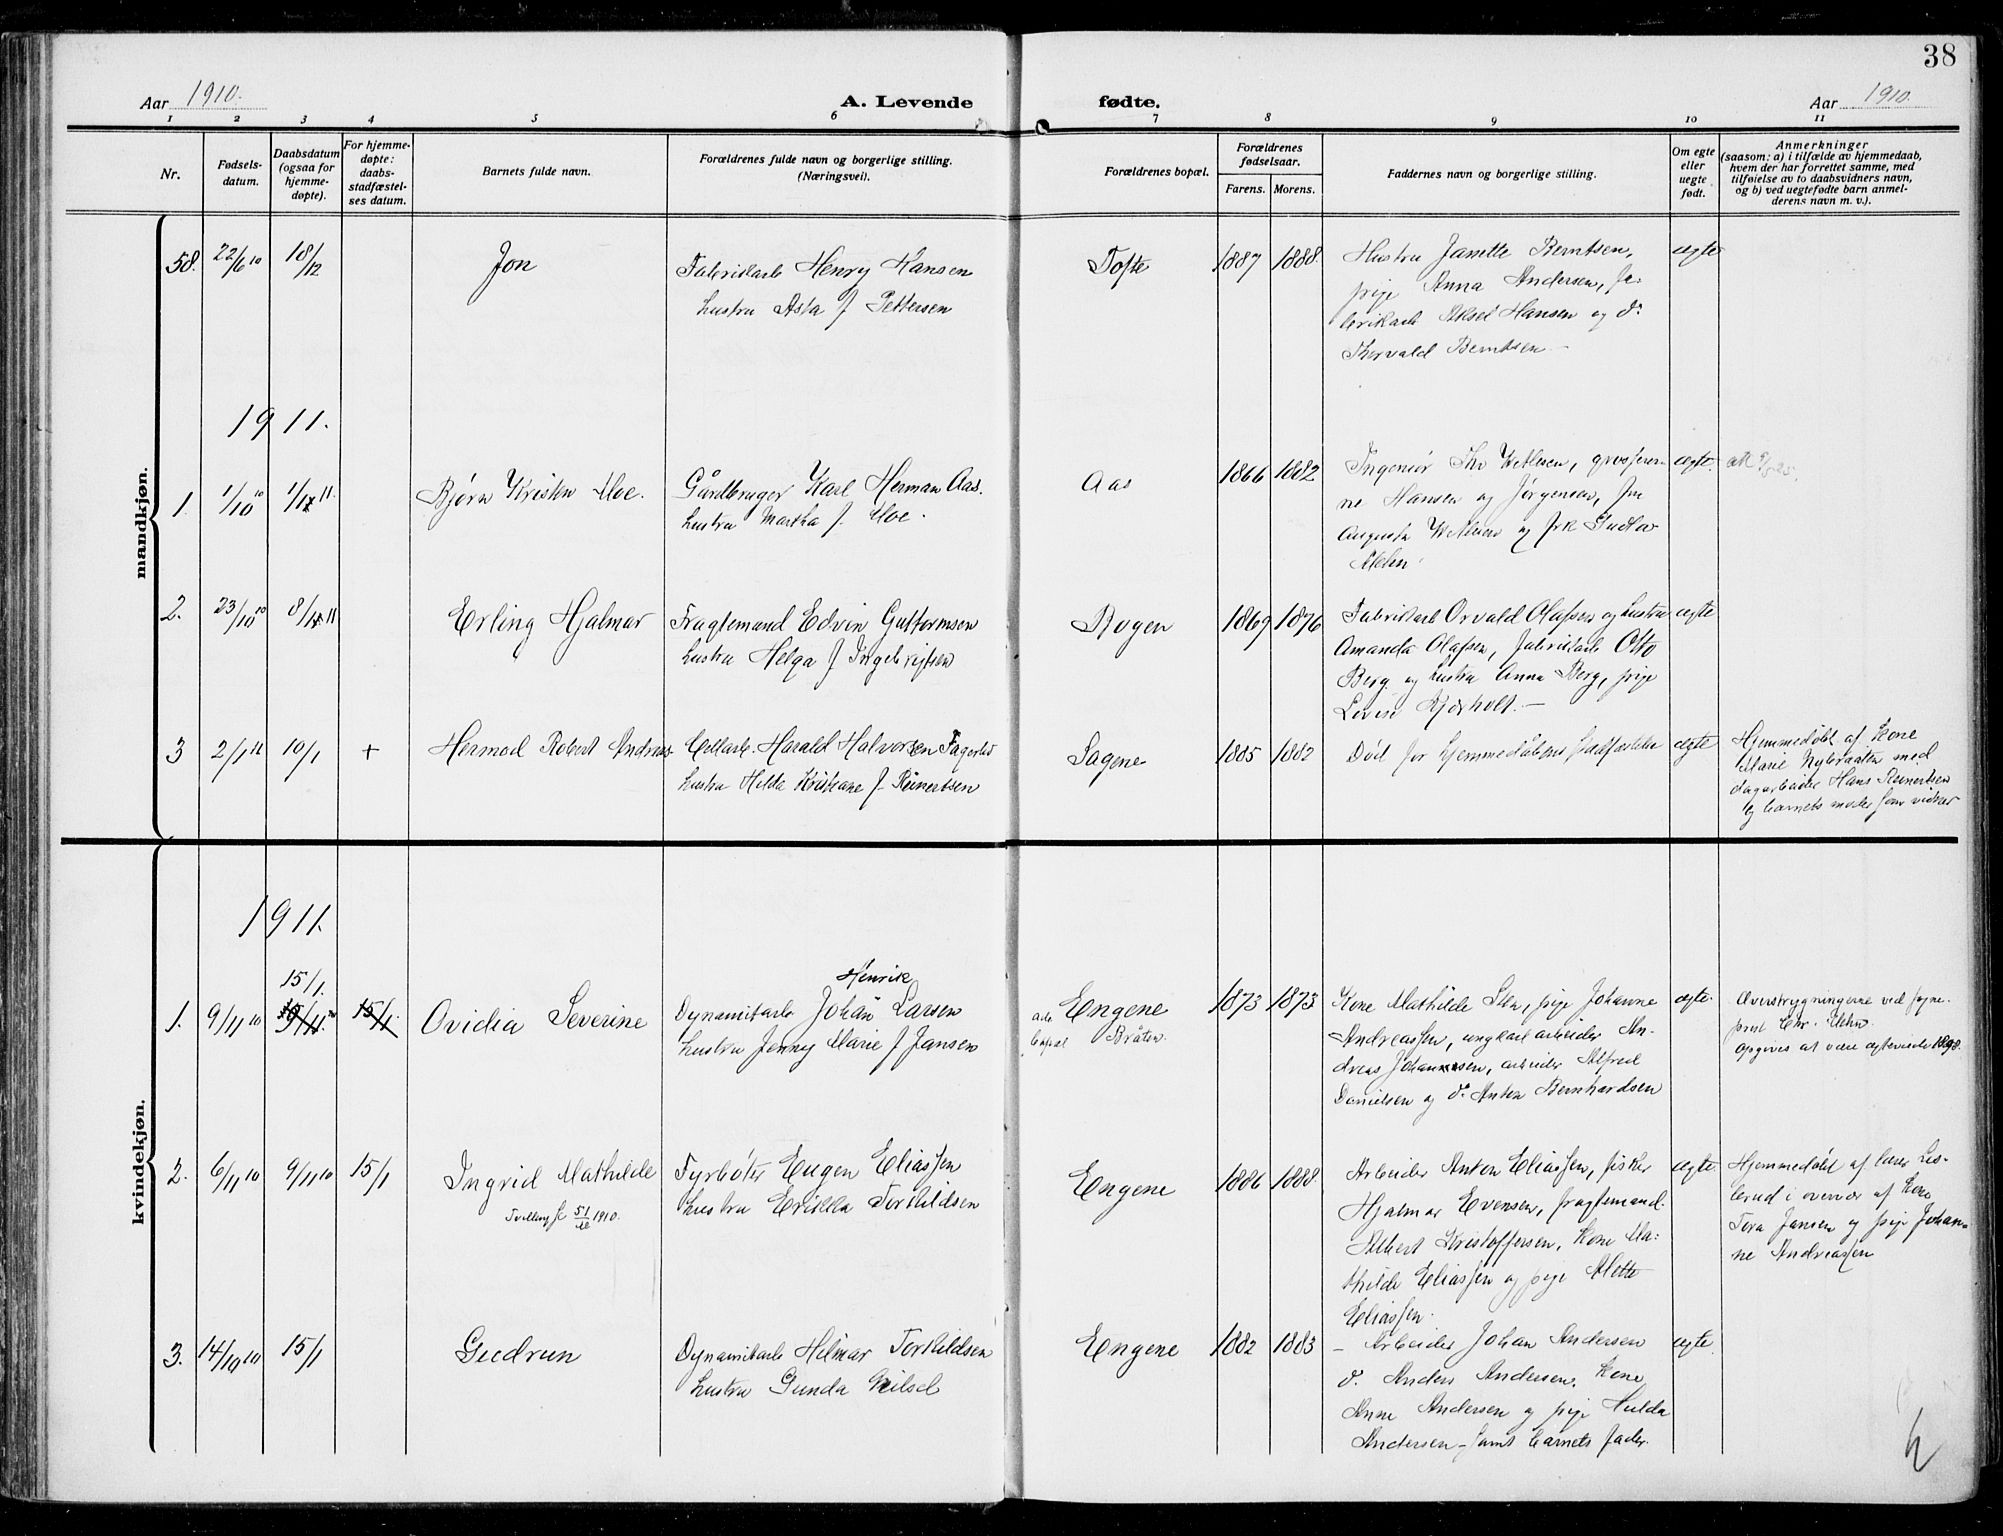 38
Aar 1910. A. Levende fødte. Aar 1910.
1 2 3 4 5 6 7 8 9 10 11
Nr.
Fødsels-
datum.
Daabsdatum
(ogsaa for
hjemme-
døpte).
For hjemme-
døpte:
daabs-
stadfæstel-
ses datum.
Barnets fulde navn.
Forældrenes fulde navn og borgerlige stilling.
(Næringsvei).
Forældrenes bopæl.
Forældrenes
fødselsaar.
Farens. Morens.
Faddernes navn og borgerlige stilling.
Om egte
eller
uegte
født.
Anmerkninger
(saasom: a) i tilfælde av hjemmedaab,
hvem der har forrettet samme, med
tilføielse av to daabsvidners navn,
og b) ved uegtefødte barn anmel-
derens navn m. v.).
mandkjøn.
58. 22/6 10 18/12 Jon
Fabrikarb Henry Hansen
hustru Asta f Pettersen
Tofte 1887 1888.
Hustru Janette Berntsen,
pige Anna Andersen, fa-
brikarb Aksel Hansen og do
Thorvald Berntsen. –
ægte
1911.
1. 1/10 10 1/1 11. Bjørn Kristen Moe.
Gårdbruger Karl Herman Aas.
hustru Martha f. Moe.
Aas 1866 1882
Ingeniør Thv Wetlesen, grosserer-
ne Hansen og Jørgensen, fru
Augusta Wetlesen og frk
ægte.
2. 23/10 10 8/1 11 Erling Hjalmar
Fragtemand Edvin Guttormsen
hustru Helga f Ingebrigtsen
Rogen 1869 1876
Fabrikarb Orvald Olafsen og hustru
Amanda Olafsen, fabrikarb Otto
Berg og hustru Anna Berg, pige
Lovise Kjøsholt. –
ægte
3 2/1 11 10/1 + Hermod Robert Andreas
Cellarb. Harald Halvorsen Fagerli
hustru Hilda Kristiane f. Reinertsen
Sagene 1885 1882
Død før hjemmedåbens stadfæstelse
ægte
Hjemmedøbt af kone
Marie Nybråten med
dagarbeider Hans Reinertsen
og barnets moder som vidner
kvindekjøn.
1911.
1. 9/11 10 15/1. 15/1. Ovidia Severine
Henrik
Dynamitarb Johan Larsen
hustru Jenny Marie f Jansen
Engene
Bråten.
1873 1873
Kone Mathilde Sten, pige Johanne
Andreassen, ungkarl arbeider An-
dreas Johannessen, arbeider Alfred
Danielsen og do Anton Bernhardsen
ægte.
Overstrygningerne ved sogne-
prest Chr. Uchn.
Opgives at være egteviede 1898.
2. 6/11 10 9/11 10 15/1 Ingrid Mathilde
Tvilling 51/1910.
Fyrbøter Eugen Eliassen
hustru Erikka Torkildsen
Engene 1886 1888.
Arbeider Anton Eliassen, fisker
Hjalmar Evensen, fragtemand
Albert Kristoffersen, kone Ma-
thilde Eliassen og pige Mette
Eliassen.
ægte.
Hjemmedøbt af lærer Les-
brud i overvær af kone
Tora Jansen og pige Johan-
ne Andreassen
3. 14/10 10 15/1 Gudrun
Dynamitarb Hilmar Torkildsen
hustru Gunda Eilsel
Engene 1882 1883
– Arbeider Johan Andersen
do. Anders Andersen. kone
Anne Andersen og pige Hulda
Andersen – samt barnets fader.
ægte.